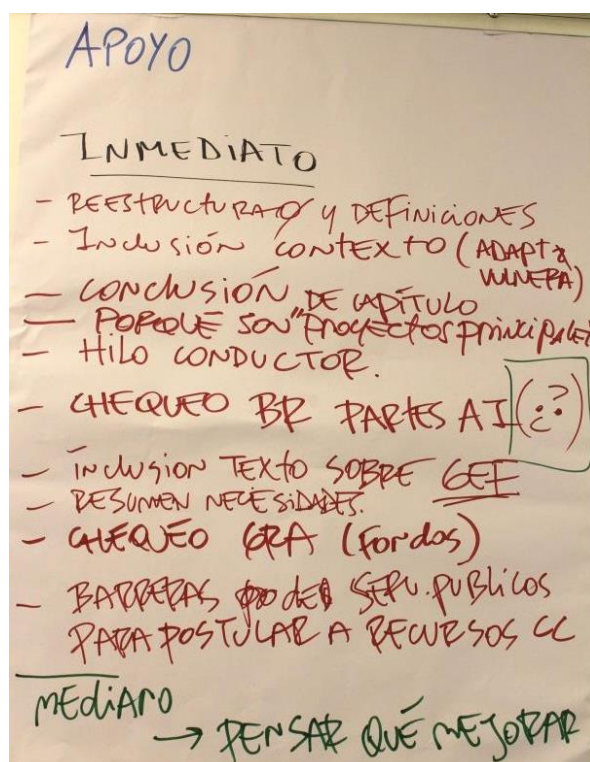 APOYO
INMEDIATO
- REESTRUCTURAR Y DEFINICIONES
- INCLUSIÓN CONTEXTO (ADAPT &
VULNERA)
- CONCLUSIÓN DE CAPÍTULO
- PORQUÉ SON "PROYECTOS PRINCIPALES
- HILO CONDUCTOR.
- CHEQUEO BR PARTES AI (¿?)
- INCLUSION TEXTO SOBRE GEF
- RESUMEN NECESIDADES.
- CHEQUEO GRA (Fondos)
- BARRERAS DE SERV. PUBLICOS
PARA POSTULAR A RECURSOS CC
MEDIANO
→ PENSAR QUÉ MEJORAR